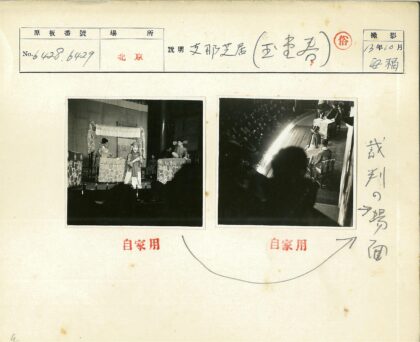 原板番號 場所 撮影
No. 6428, 6429 北京 說明 支那芝居(玉堂春) 俗 13年10月
自家用 自家用
裁判の場面